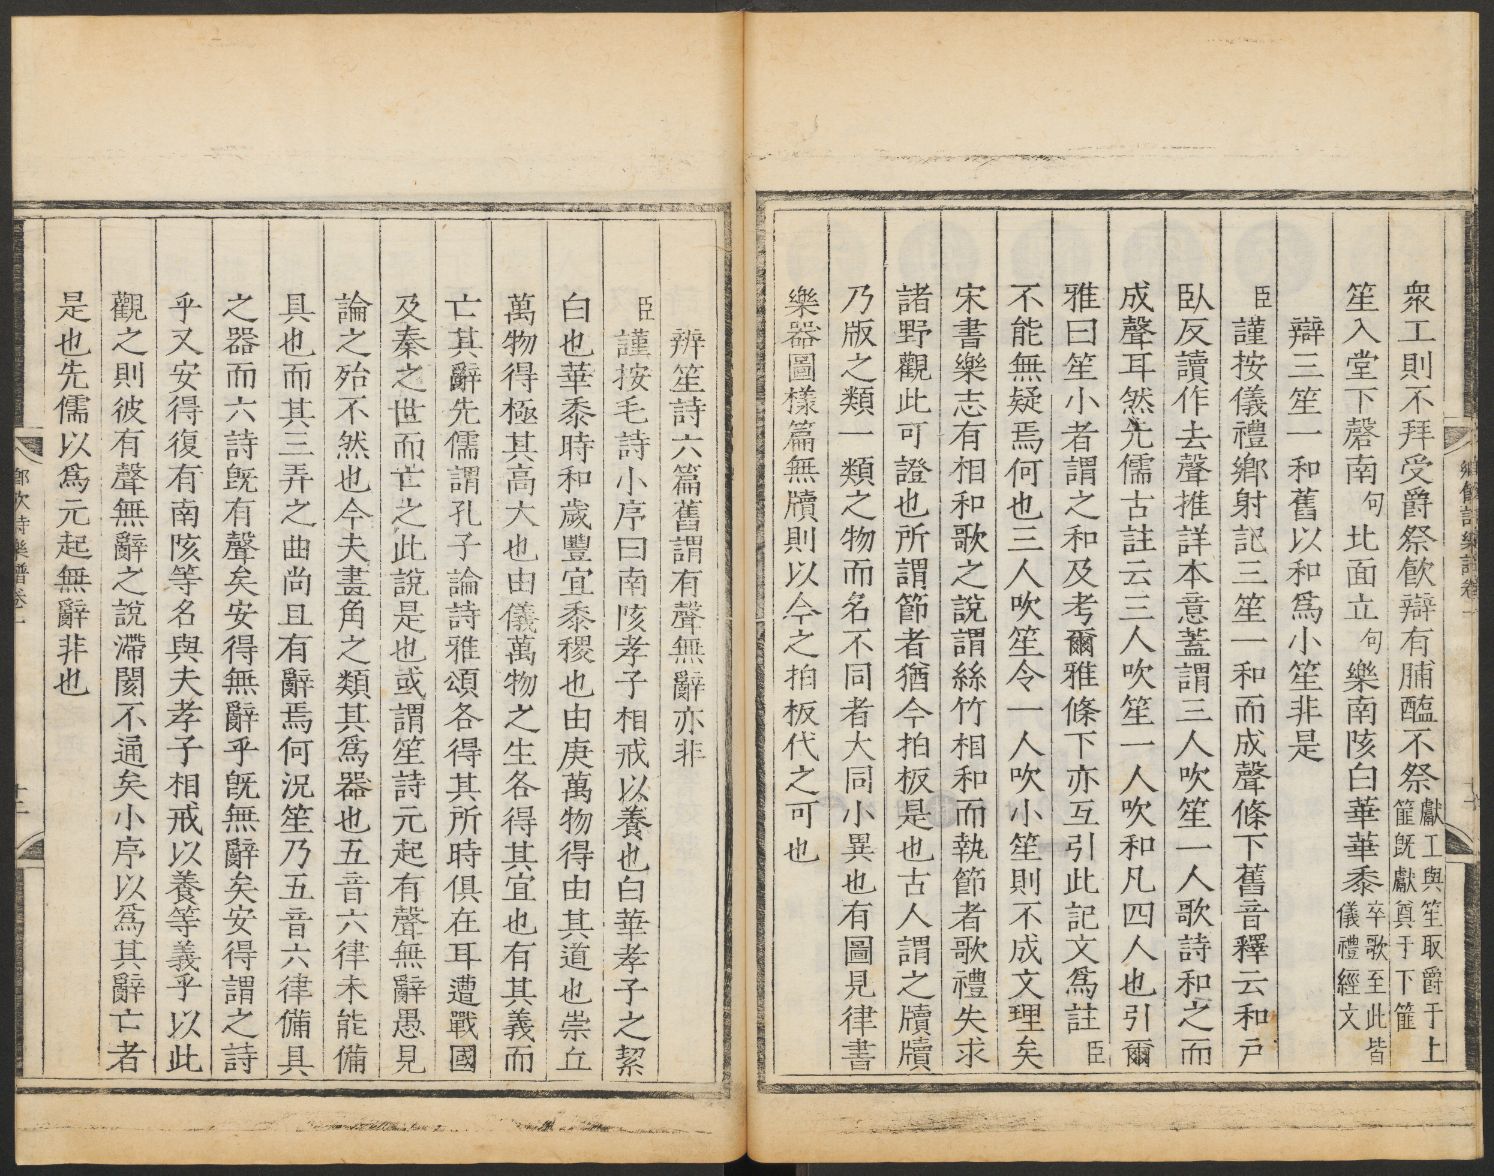 衆工則不拜受爵祭飮辯有脯醢不祭獻工與笙取爵于上篚旣獻奠于下篚
笙入堂下磬南句北面立句樂南陔白華華黍卒歌至此皆儀禮經文
辯三笙一和舊以和爲小笙非是
臣謹按儀禮鄉射記三笙一和而成聲條下舊音釋云和戶
臥反讀作去聲推詳本意蓋謂三人吹笙一人歌詩和之而
成聲耳然先儒古註云三人吹笙一人吹和凡四人也引爾
雅曰笙小者謂之和及考爾雅條下亦互引此記文爲註臣
不能無疑焉何也三人吹笙令一人吹小笙則不成文理矣
宋書樂志有相和歌之說謂絲竹相和而執節者歌禮失求
諸野觀此可證也所謂節者猶今拍板是也古人謂之牘牘
乃版之類一類之物而名不同者大同小異也有圖見律書
樂器圖樣篇無牘則以今之拍板代之可也
辨笙詩六篇舊謂有聲無辭亦非
臣謹按毛詩小序曰南陔孝子相戒以養也白華孝子之絜
白也華黍時和歲豐宜黍稷也由庚萬物得由其道也崇丘
萬物得極其高大也由儀萬物之生各得其宜也有其義而
亡其辭先儒謂孔子論詩雅頌各得其所時俱在耳遭戰國
及秦之世而亡之此說是也或謂笙詩元起有聲無辭愚見
論之殆不然也今夫畫角之類其爲器也五音六律未能備
具也而其三弄之曲尚且有辭焉何況笙乃五音六律備具
之器而六詩旣有聲矣安得無辭乎旣無辭矣安得謂之詩
乎又安得復有南陔等名與夫孝子相戒以養等義乎以此
觀之則彼有聲無辭之說滯閡不通矣小序以爲其辭亡者
是也先儒以爲元起無辭非也